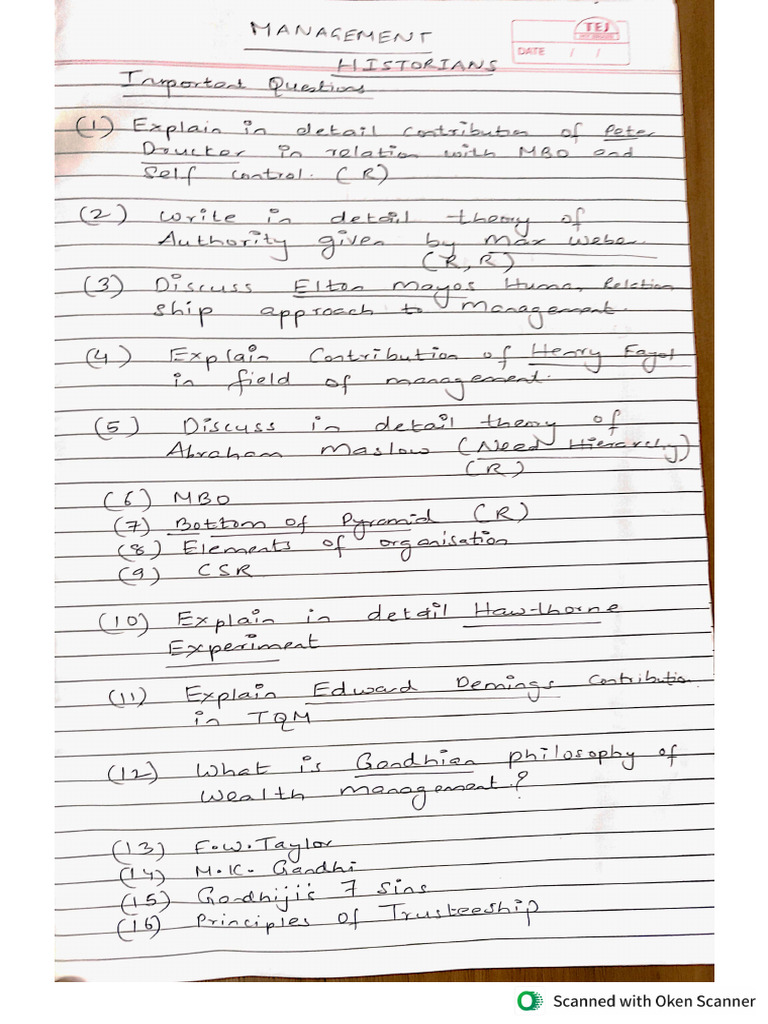 MANAGEMENT
TEJ
DATE / /
HISTORIANS
Important Questions
(1) Explain in detail contribution of Peter
Drucker in relation with MBO and
Self control. (R)
(2) Write in detail theory of
Authority given by Max Weber
(R, R)
(3) Discuss Elton Mayos Human Relation
ship approach to management.
(4) Explain Contribution of Henry Fayol
in field of management.
(5) Discuss in detail theory of
Abraham Maslow (Need Hierarchy)
(R)
(6) MBO
(7) Bottom of Pyramid (R)
(8) Elements of organisation
(9) CSR
(10) Explain in detail Haw-thorne
Experiment
(11) Explain Edward Demings contribution
in TQM
(12) What is Gandhian philosophy of
wealth management?
(13) F.W. Taylor
(14) M.K. Gandhi
(15) Gandhiji's 7 Sins
(16) Principles of Trusteeship
Scanned with Oken Scanner